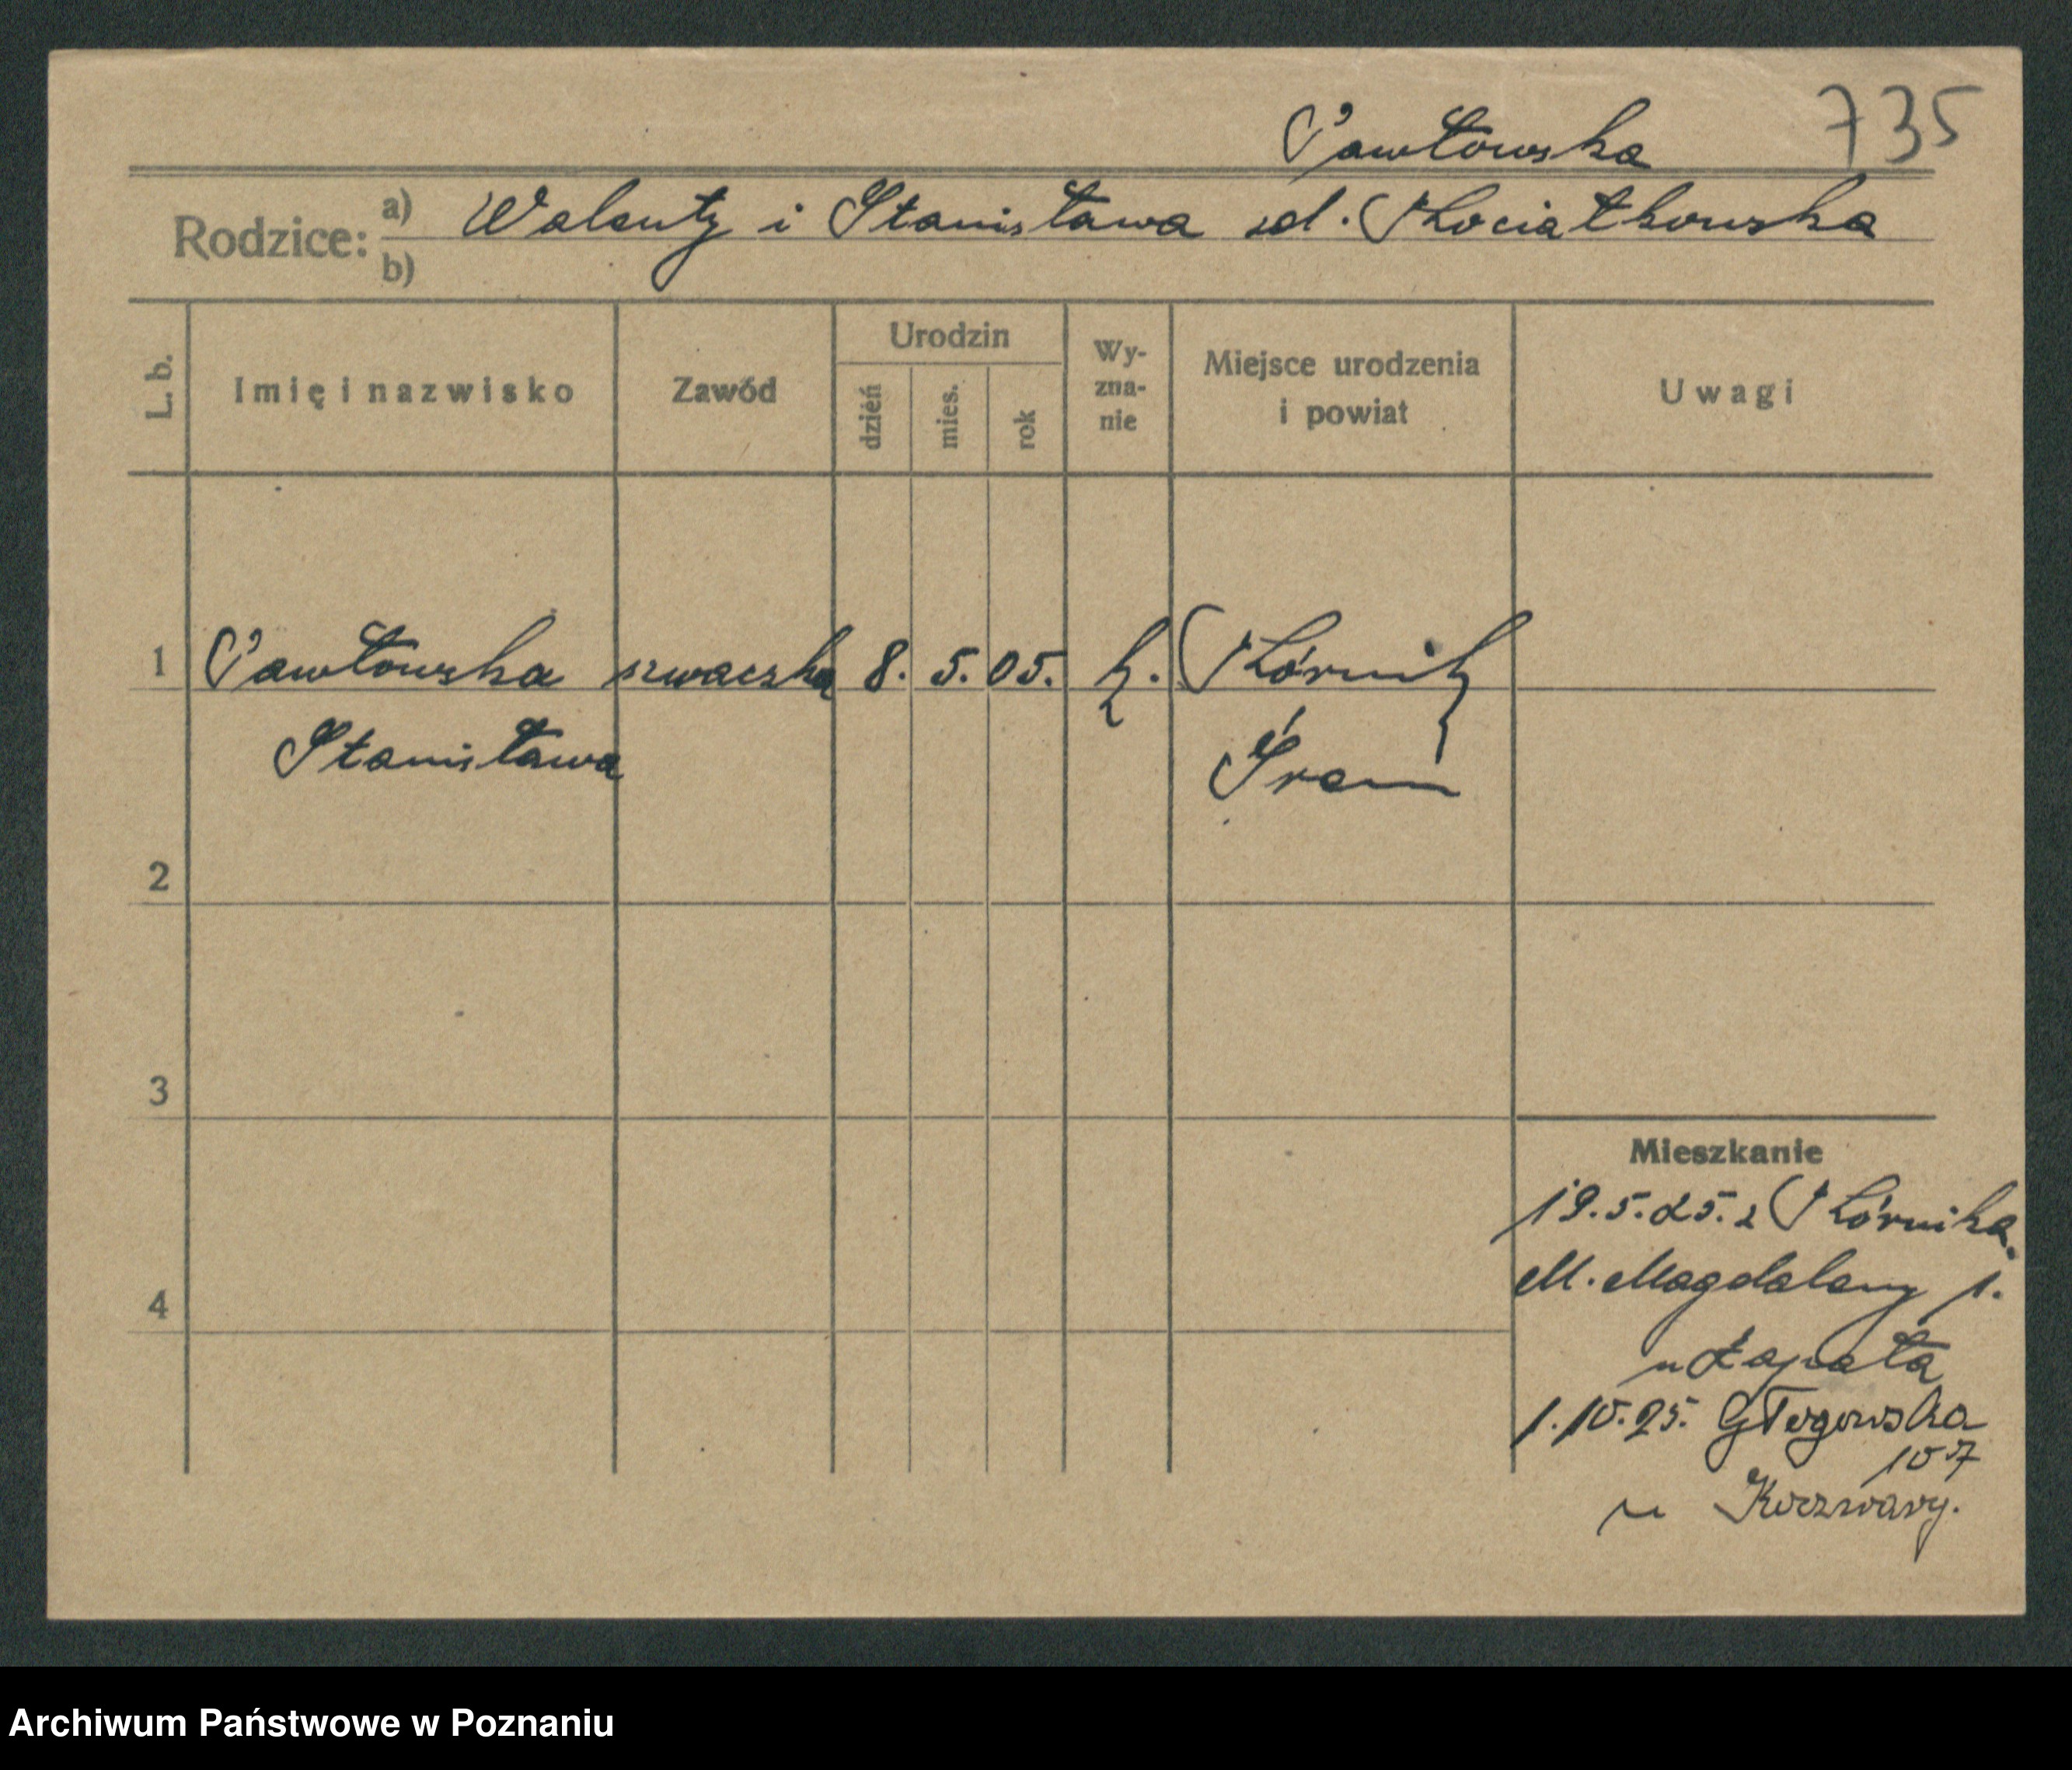 735
Pawłowska
Rodzice: a) Walenty i Stanisława zd. Kociatkowska
b)
L. b. Imię i nazwisko Zawód Urodzin dzień mies. rok Wy-zna-nie Miejsce urodzenia i powiat Uwagi
1 Pawłowska szwaczka 8. 5. 05. k. Kórnik
Stanisława Śrem
2
3
Mieszkanie
19.5.25. z Kórnika
M. Magdaleny 1.
4
u Łapata
1.10.25. Głogowska
107
u
Archiwum Państwowe w Poznaniu